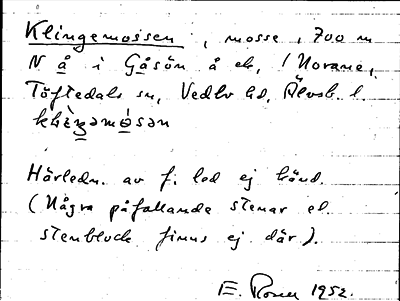 Klingemossen, mosse, 700 m
N å i Gåsön å ek, i Norane,
Töftedals sn, Vedbo hd, Älvsb. l.
Härledn. av f. led ej känd.
(Några påfallande stenar el.
stenblock finns ej där).
E. 1952.